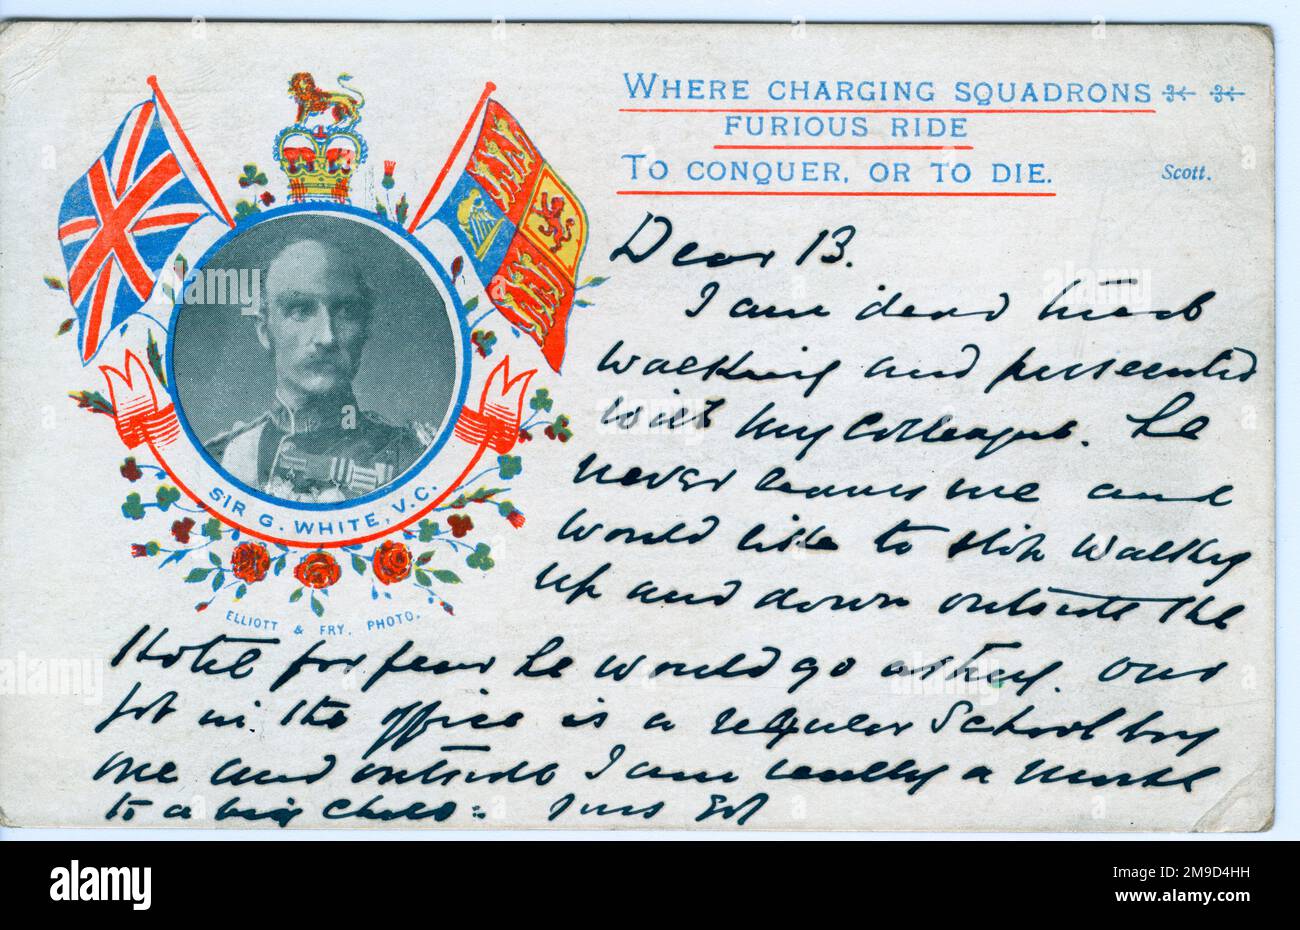 WHERE CHARGING SQUADRONS
FURIOUS RIDE
TO CONQUER, OR TO DIE.
Scott.
SIR G. WHITE, V.C.
ELLIOTT & FRY, PHOTO.
Dear B.
I am dead tired
walking and persecuted
with my Colleague. he
never leaves me and
would like to stop walking
up and down outside the
Hotel for fear he would go astray. our
job in the office is a regular School boy
one and outside I am really a nurse
to a big child
a
alamy
Image ID: 2M9D4HH
www.alamy.com